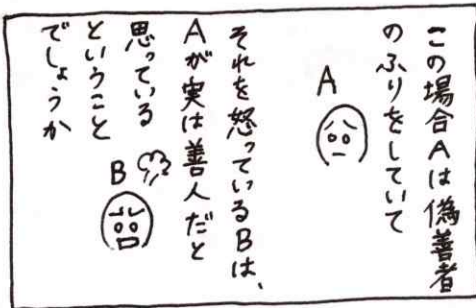 この場合Aは偽善者
のふりをしていて
A
それを怒っているBは、
Aが実は善人だと
思っている
ということ
でしょうか
B